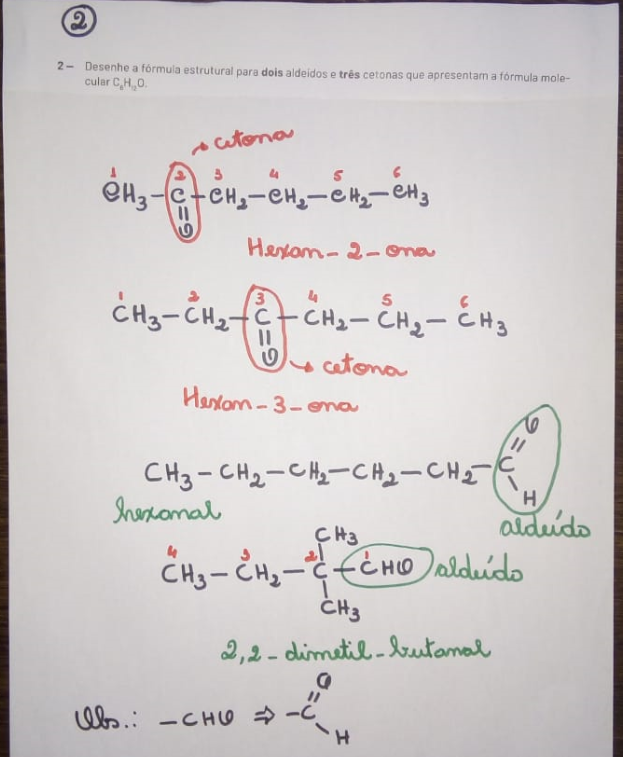 2
2 – Desenhe a fórmula estrutural para dois aldeídos e três cetonas que apresentam a fórmula mole-
cular C₆H₁₂O.
cetona
1 2 3 4 5 6
CH₃ – C – CH₂ – CH₂ – CH₂ – CH₃
O
Hexan - 2 - ona
1 2 3 4 5 6
CH₃ – CH₂ – C – CH₂ – CH₂ – CH₃
O
cetona
Hexan - 3 - ona
O
CH₃ – CH₂ – CH₂ – CH₂ – CH₂ – C
H
hexanal
aldeído
CH₃
4 3 2 1
CH₃ – CH₂ – C – CHO aldeído
CH₃
2,2 - dimetil - butanal
O
Obs.: – CHO ⇒ – C
H